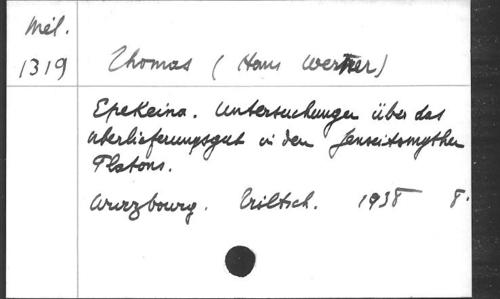 Mél.
1319
Thomas (Hans Werner)
Epekeina. Untersuchungen über das
Uberlieferungsgut in den Jenseitsmythen
Platons.
Wurzbourg. Triltsch. 1938 8.